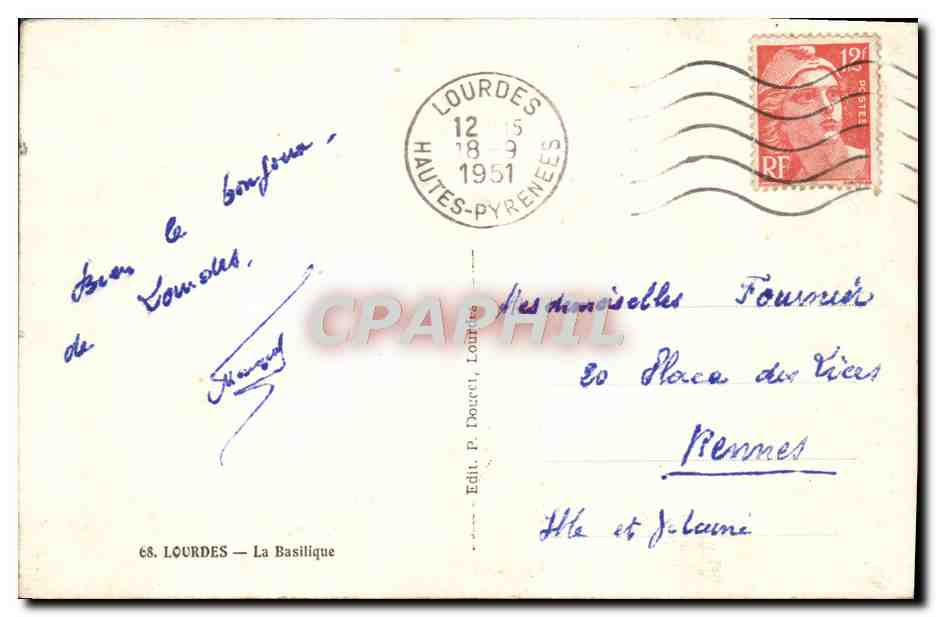 LOURDES
12
18 - 9
1951
HAUTES-PYRENEES
12f
POSTES
RF
Bien le bonjour.
de Lourdes.
Mesdemoiselles Fournier
20 Place des Lices
Rennes
Ille et Vilaine
CPAPHIL
Edit. P. Doucet, Lourdes
68. LOURDES — La Basilique